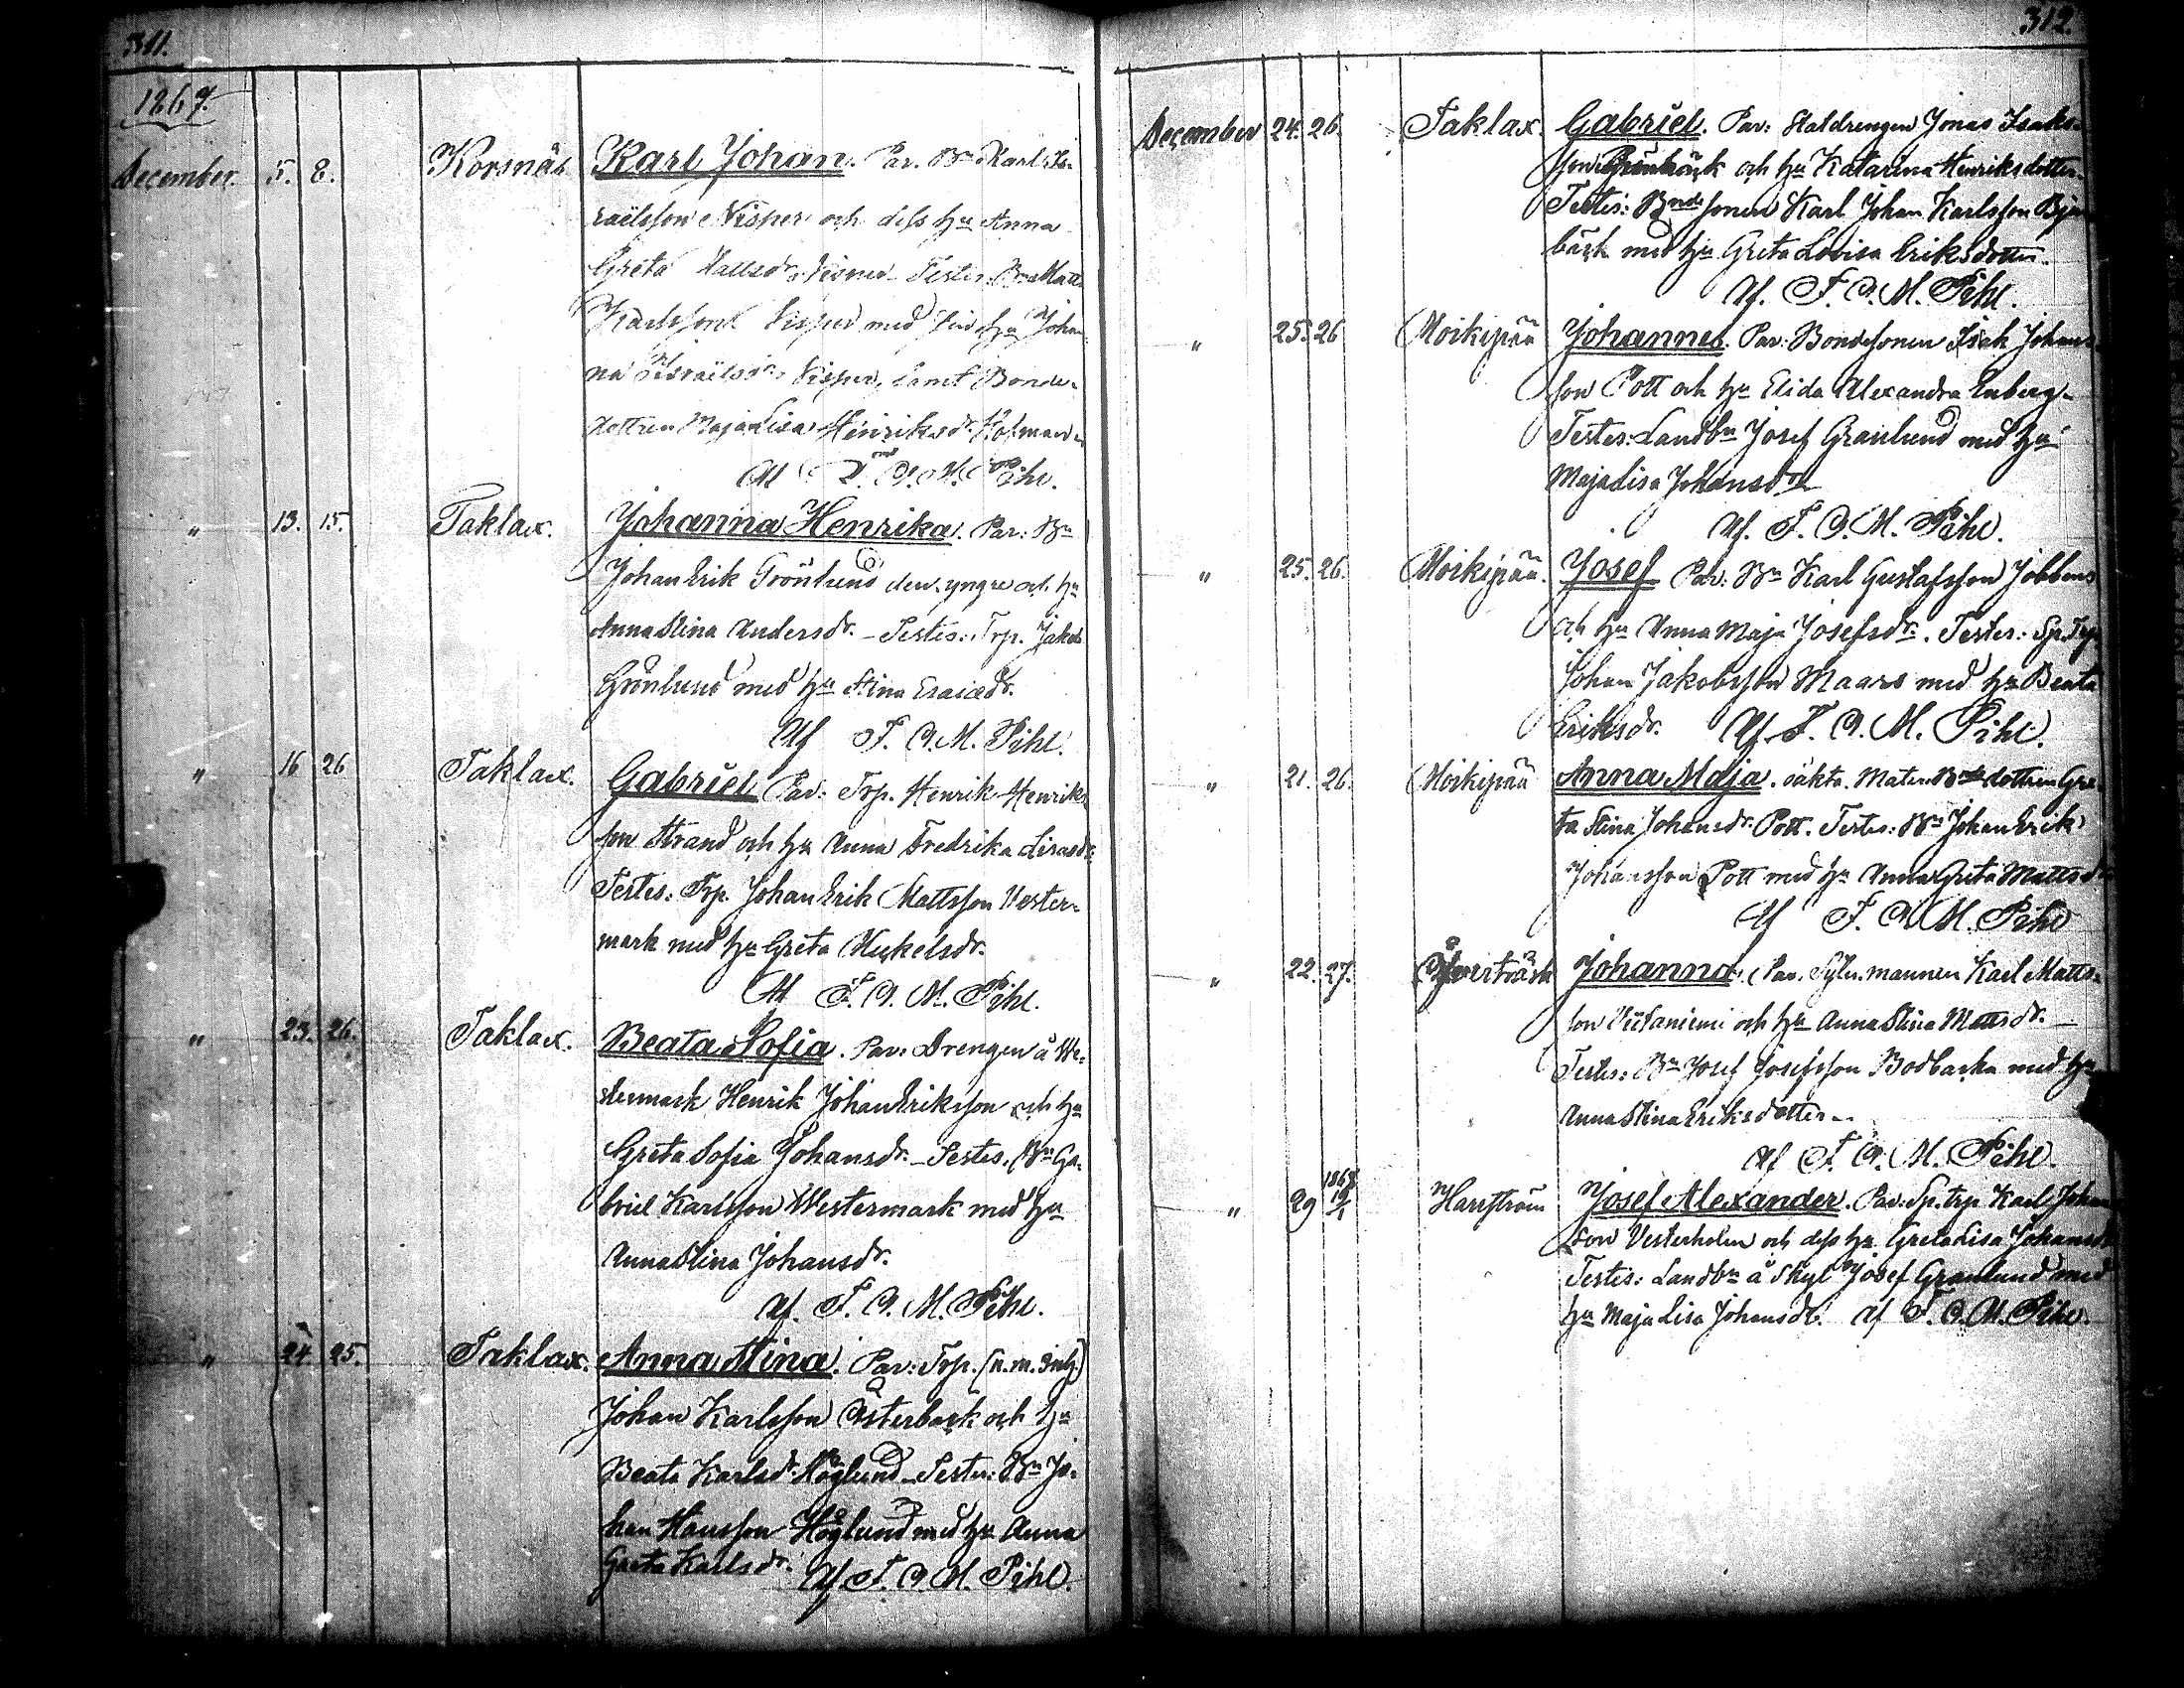 311.
1867.
December. 5. 8. Korsnäs Karl Johan. Par. Bn Karl Is-
raëlsson Nisper och dess hu Anna
Greta Mattsdr. Testes: Bn Matts
Karlsson med hu Johan-
na Israëlsdr samt Bonde-
dottren Maja Lisa Henriksdr
Af F. O. M. Pihl.
" 13. 15. Taklax. Johanna Henrika. Par: Bn
Johan Erik Grönlund den yngre och hu
Anna Stina Andersdr. – Testes: Trp. Jakob
Grönlund med hu Stina Esaiædr.
Af F. O. M. Pihl.
" 16 26 Taklax. Gabriel Par: Trp. Henrik Henriks
son Strand och hu Anna Fredrika
Testes: Trp. Johan Erik Mattsson Vester-
mark med hu Greta Mickelsdr.
Af F. O. M. Pihl.
" 23. 26. Taklax. Beata Sofia. Par: Drengen å We-
stermark Henrik Johan Eriksson och hu
Greta Sofia Johansdr. – Testes. Bn Ga-
briel Karlsson Westermark med hu
Anna Stina Johansdr.
Af. F. O. M. Pihl.
" 24 25. Taklax. Anna Stina. Par: Trp. (n.m. Inh.)
Johan Karlsson Österback och hu
Beata Karlsdr. Höglund – Testes: Bn Jo-
han Hansson Höglund med hu Anna
Greta Karlsdr. Af F. O. M. Pihl.
312.
December 24. 26. Taklax. Gabriel. Par: Jonas Isaks-
son och hu Katarina Henriksdotter.
Testes: Bndesonen Karl Johan Karlsson
bäck med hu Greta Lovisa Eriksdotter.
Af. F. O. M. Pihl.
" 25. 26 Moikipää Johannes. Par: Bondesonen Isak Johans
son Pott och hu Elida Alexandra Enberg.
Testes: Landbn Josef Granlund med hu
Maja Lisa Johansdr
Af. F. O. M. Pihl.
" 25. 26. Moikipää. Josef Par: Bn Karl Gustafsson Jobbens
och hu Anna Maja Josefsdr. Testes: Sp. Trp
Johan Jakobsson Maars med hu Beata
Eriksdr. Af. F. O. M. Pihl.
" 21. 26. Moikipää Anna Maja. oäkta. Mater: Bndedottren Gre-
ta Stina Johansdr. Pott. Testes: Bn Johan Erik
Johansson Pott med hu Anna Greta Mattsdr
Af F. O. M. Pihl
" 22. 27. Johanna. Par. Sytn.mannen Karl Matts-
son Viitaniemi och hu Anna Stina Mattsdr. –
Testes: Bn Josef Josefsson Bodbacka med hu
Anna Stina Eriksdotter –
Af F. O. M. Pihl.
" 29 1868 19/1 Harrström Josef Alexander. Par: Sp. trp Karl Johan
son Vesterholm och dess hu Greta Lisa Johansdr
Testes: Landbn å Skyt Josef Granlund med
hu Maja Lisa Johansdr. Af F. O. M. Pihl.